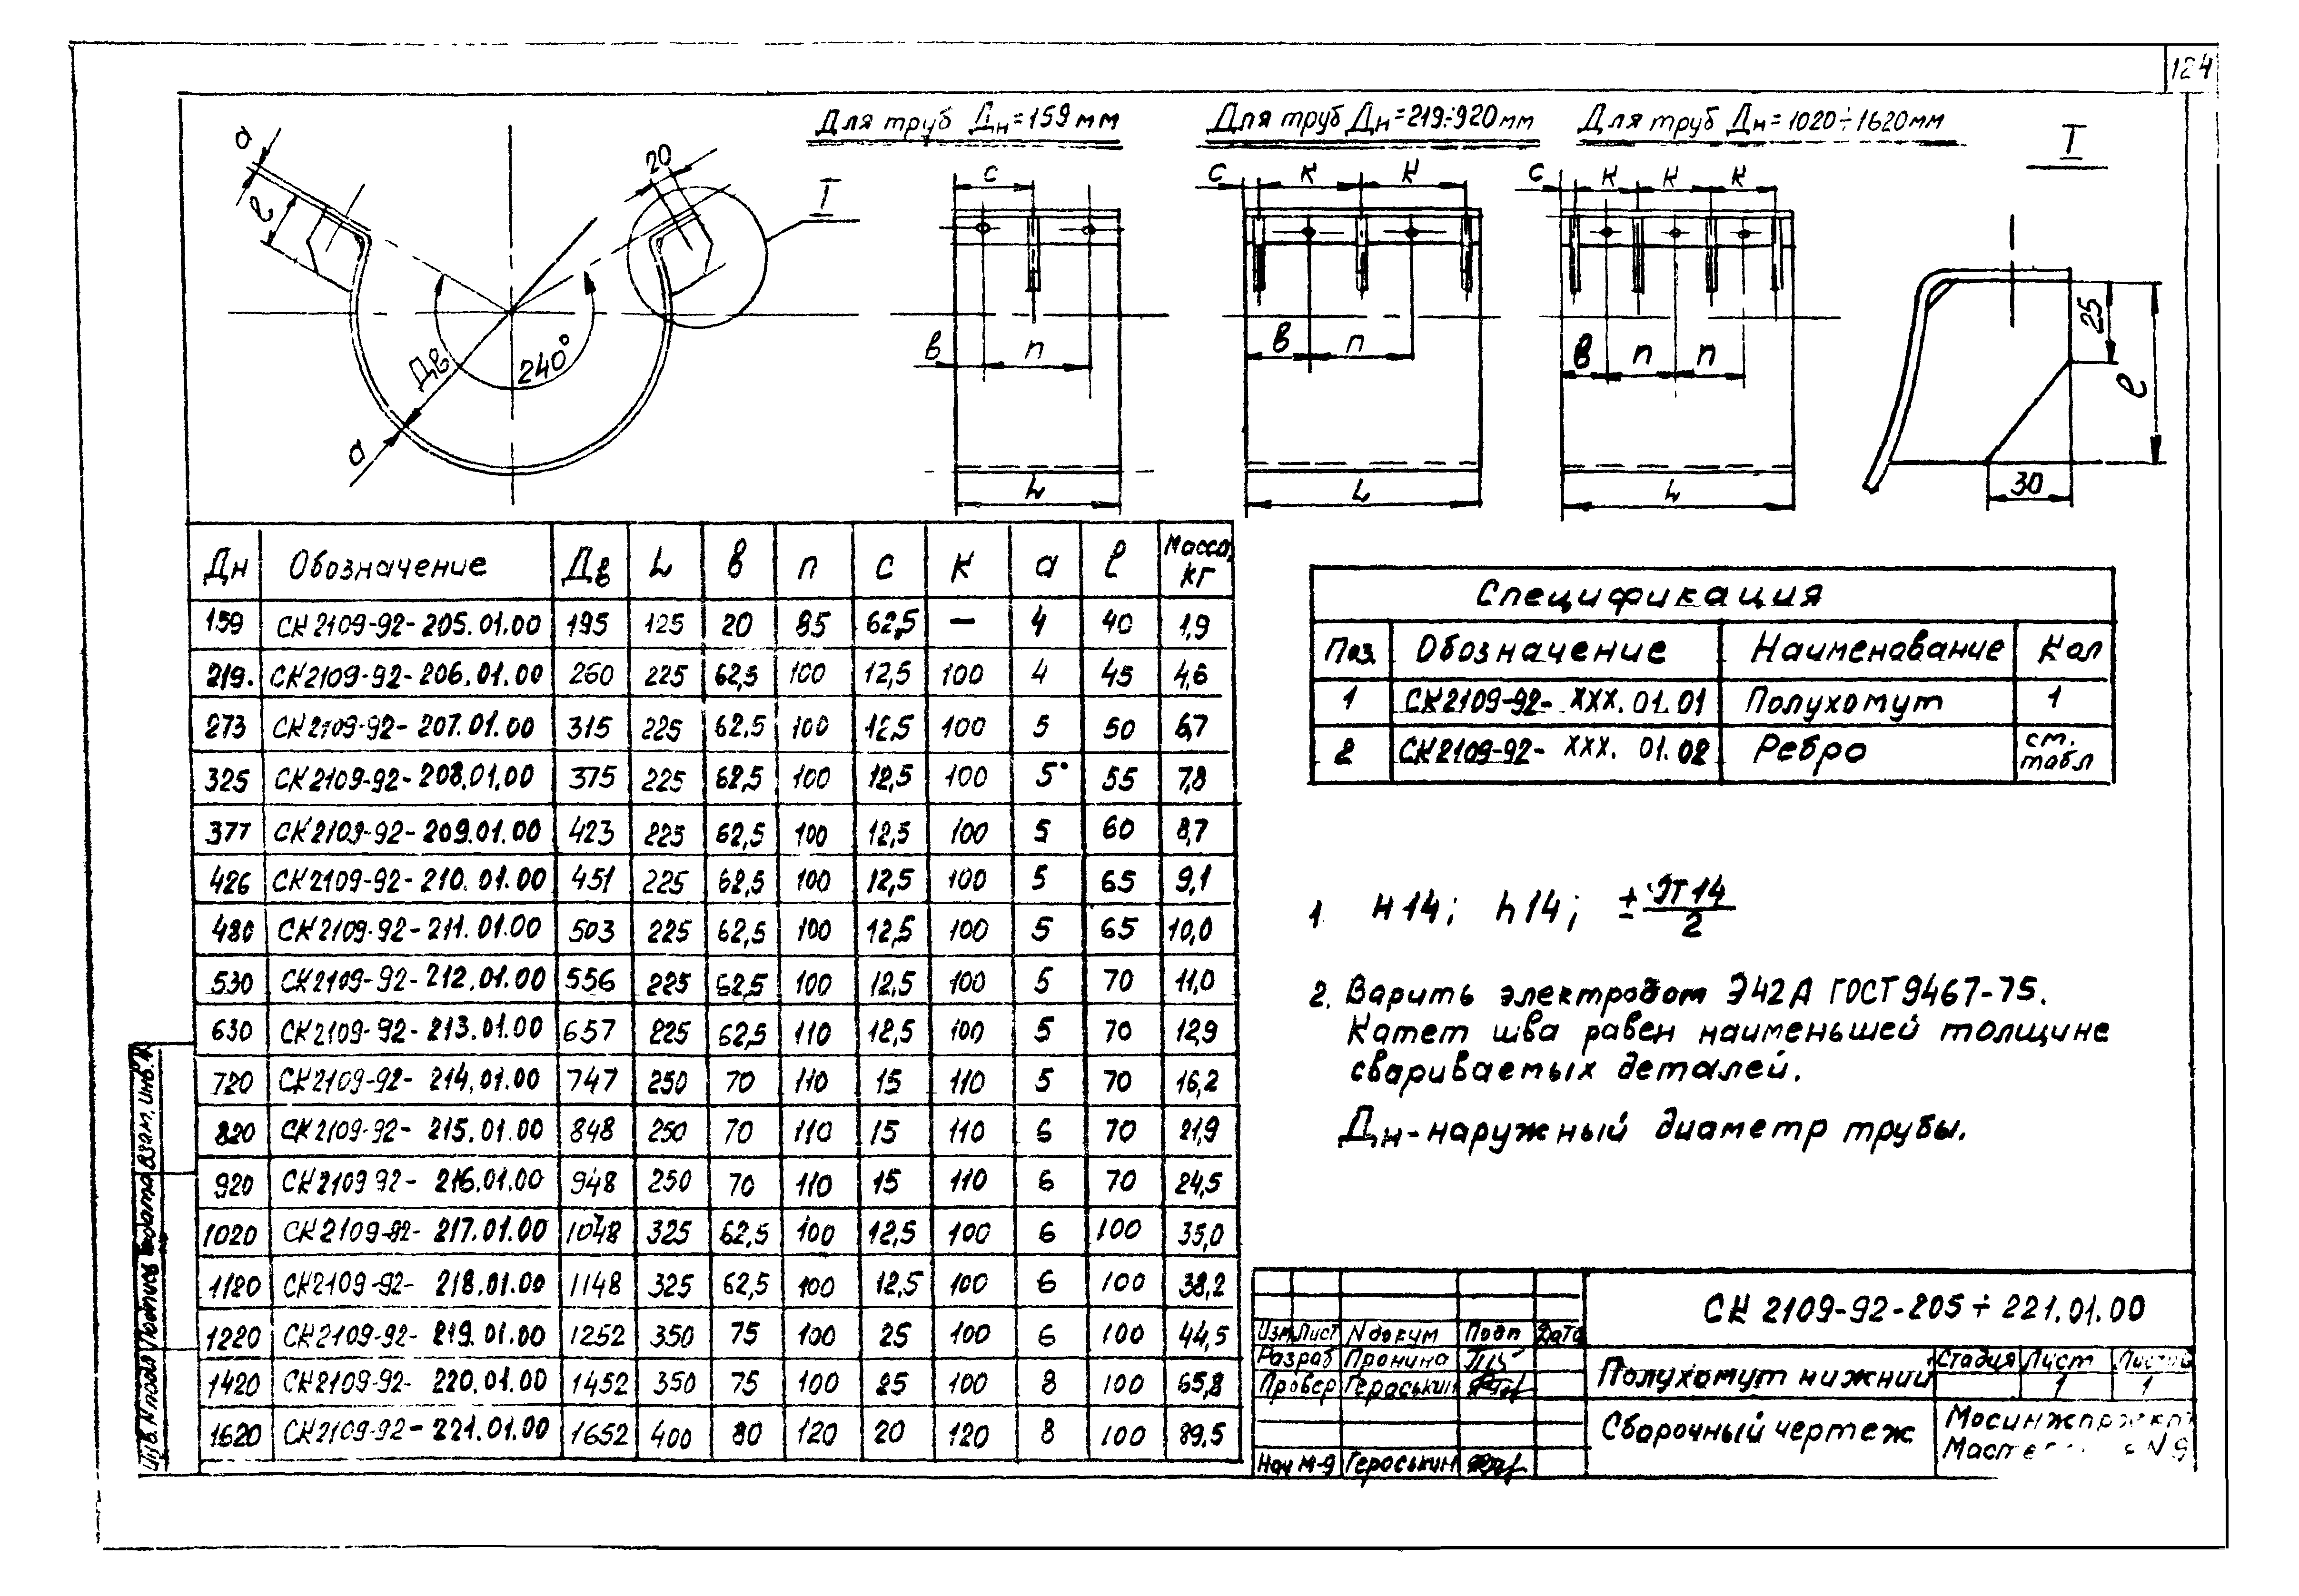 124
Для труб Дн=159мм
Для труб Дн=219÷920мм
Для труб Дн=1020÷1620мм
I
а
l
20
I
Дв
240°
а
с
в
п
L
с
к
к
в
п
L
с
к
к
к
в
п
п
L
25
l
30
Дн Обозначение Дв L в п с к а l Масса, кг
159 СК2109-92-205.01.00 195 125 20 85 62,5 — 4 40 1,9
219. СК2109-92-206.01.00 260 225 62,5 100 12,5 100 4 45 4,6
273 СК2109-92-207.01.00 315 225 62,5 100 12,5 100 5 50 6,7
325 СК2109-92-208.01.00 375 225 62,5 100 12,5 100 5 55 7,8
377 СК2109-92-209.01.00 423 225 62,5 100 12,5 100 5 60 8,7
426 СК2109-92-210.01.00 451 225 62,5 100 12,5 100 5 65 9,1
480 СК2109-92-211.01.00 503 225 62,5 100 12,5 100 5 65 10,0
530 СК2109-92-212.01.00 556 225 62,5 100 12,5 100 5 70 11,0
630 СК2109-92-213.01.00 657 225 62,5 110 12,5 100 5 70 12,9
720 СК2109-92-214.01.00 747 250 70 110 15 110 5 70 16,2
820 СК2109-92-215.01.00 848 250 70 110 15 110 6 70 21,9
920 СК2109 92-216.01.00 948 250 70 110 15 110 6 70 24,5
1020 СК2109-92-217.01.00 1048 325 62,5 100 12,5 100 6 100 35,0
1120 СК2109-92-218.01.00 1148 325 62,5 100 12,5 100 6 100 38,2
1220 СК2109-92-219.01.00 1252 350 75 100 25 100 6 100 44,5
1420 СК2109-92-220.01.00 1452 350 75 100 25 100 8 100 65,8
1620 СК2109-92-221.01.00 1652 400 80 120 20 120 8 100 89,5
Спецификация
Поз. Обозначение Наименование Кол
1 СК2109-92-ХХХ.01.01 Полухомут 1
2 СК2109-92-ХХХ.01.02 Ребро ст. табл
1. Н14; h14; ± JТ14/2
2. Варить электродом Э42А ГОСТ 9467-75.
Катет шва равен наименьшей толщине
свариваемых деталей.
Дн-наружный диаметр трубы.
СК 2109-92-205÷221.01.00
Изм Лист N докум Подп Дата
Разраб Пронина
Провер Гераськин
Нач М-9 Гераськин
Полухомут нижний
Сборочный чертеж
Стадия Лист Листов
1 1
Мосинжпроект
N 9
Взам. инв. N
Подпись и дата
Инв. N подл